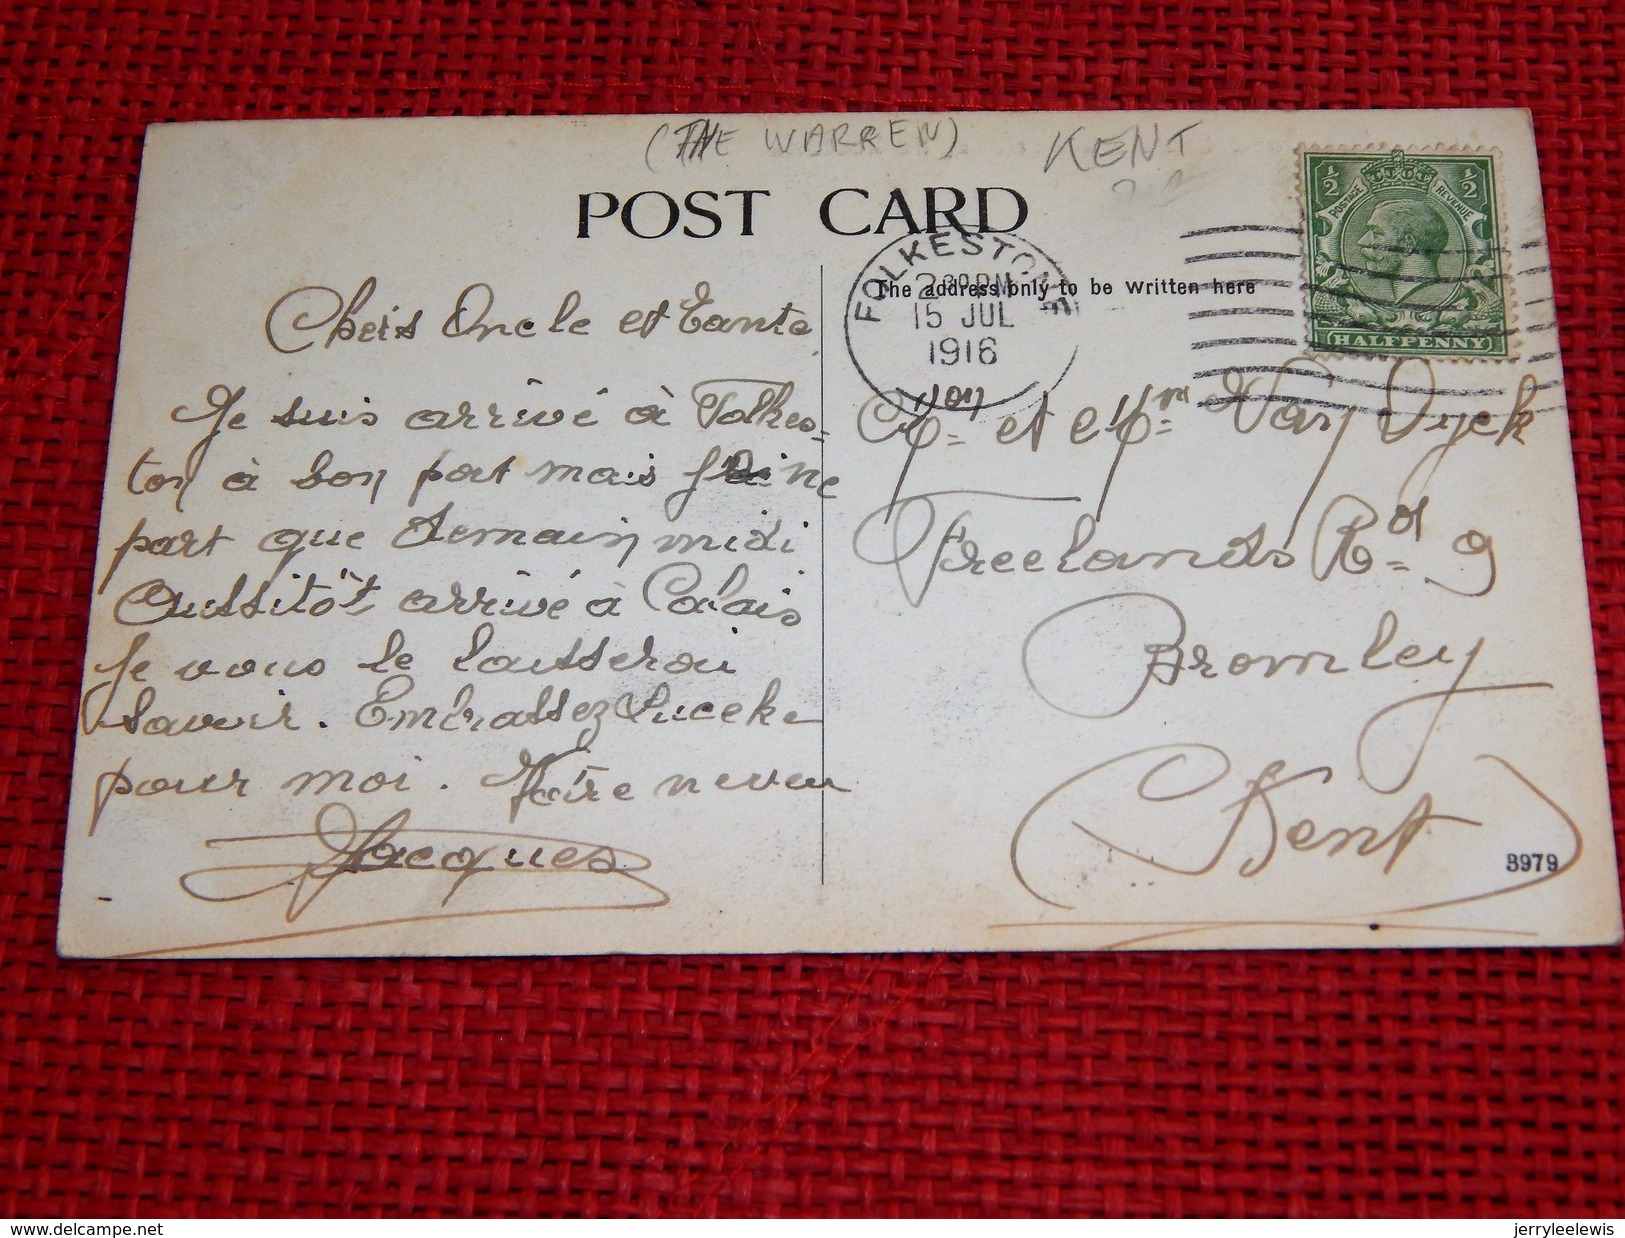 (THE WARREN) KENT
POST CARD
FOLKESTONE
2.30 PM
15 JUL
1916
1/2 1/2
POSTAGE REVENUE
HALFPENNY
The address only to be written here
Chers Oncle et Tante
Je suis arrivé à Folkes=
ton à bon port mais je ne
part que demain midi
Aussitôt arrivé à Calais
Je vous le laisserai
savoir. Embrassez Luceke
pour moi. Votre neveu
Jacques
Mon et Mm Van Dyck
Freelands Rd 9
Bromley
Kent
3979
www.delcampe.net
jerryleelewis